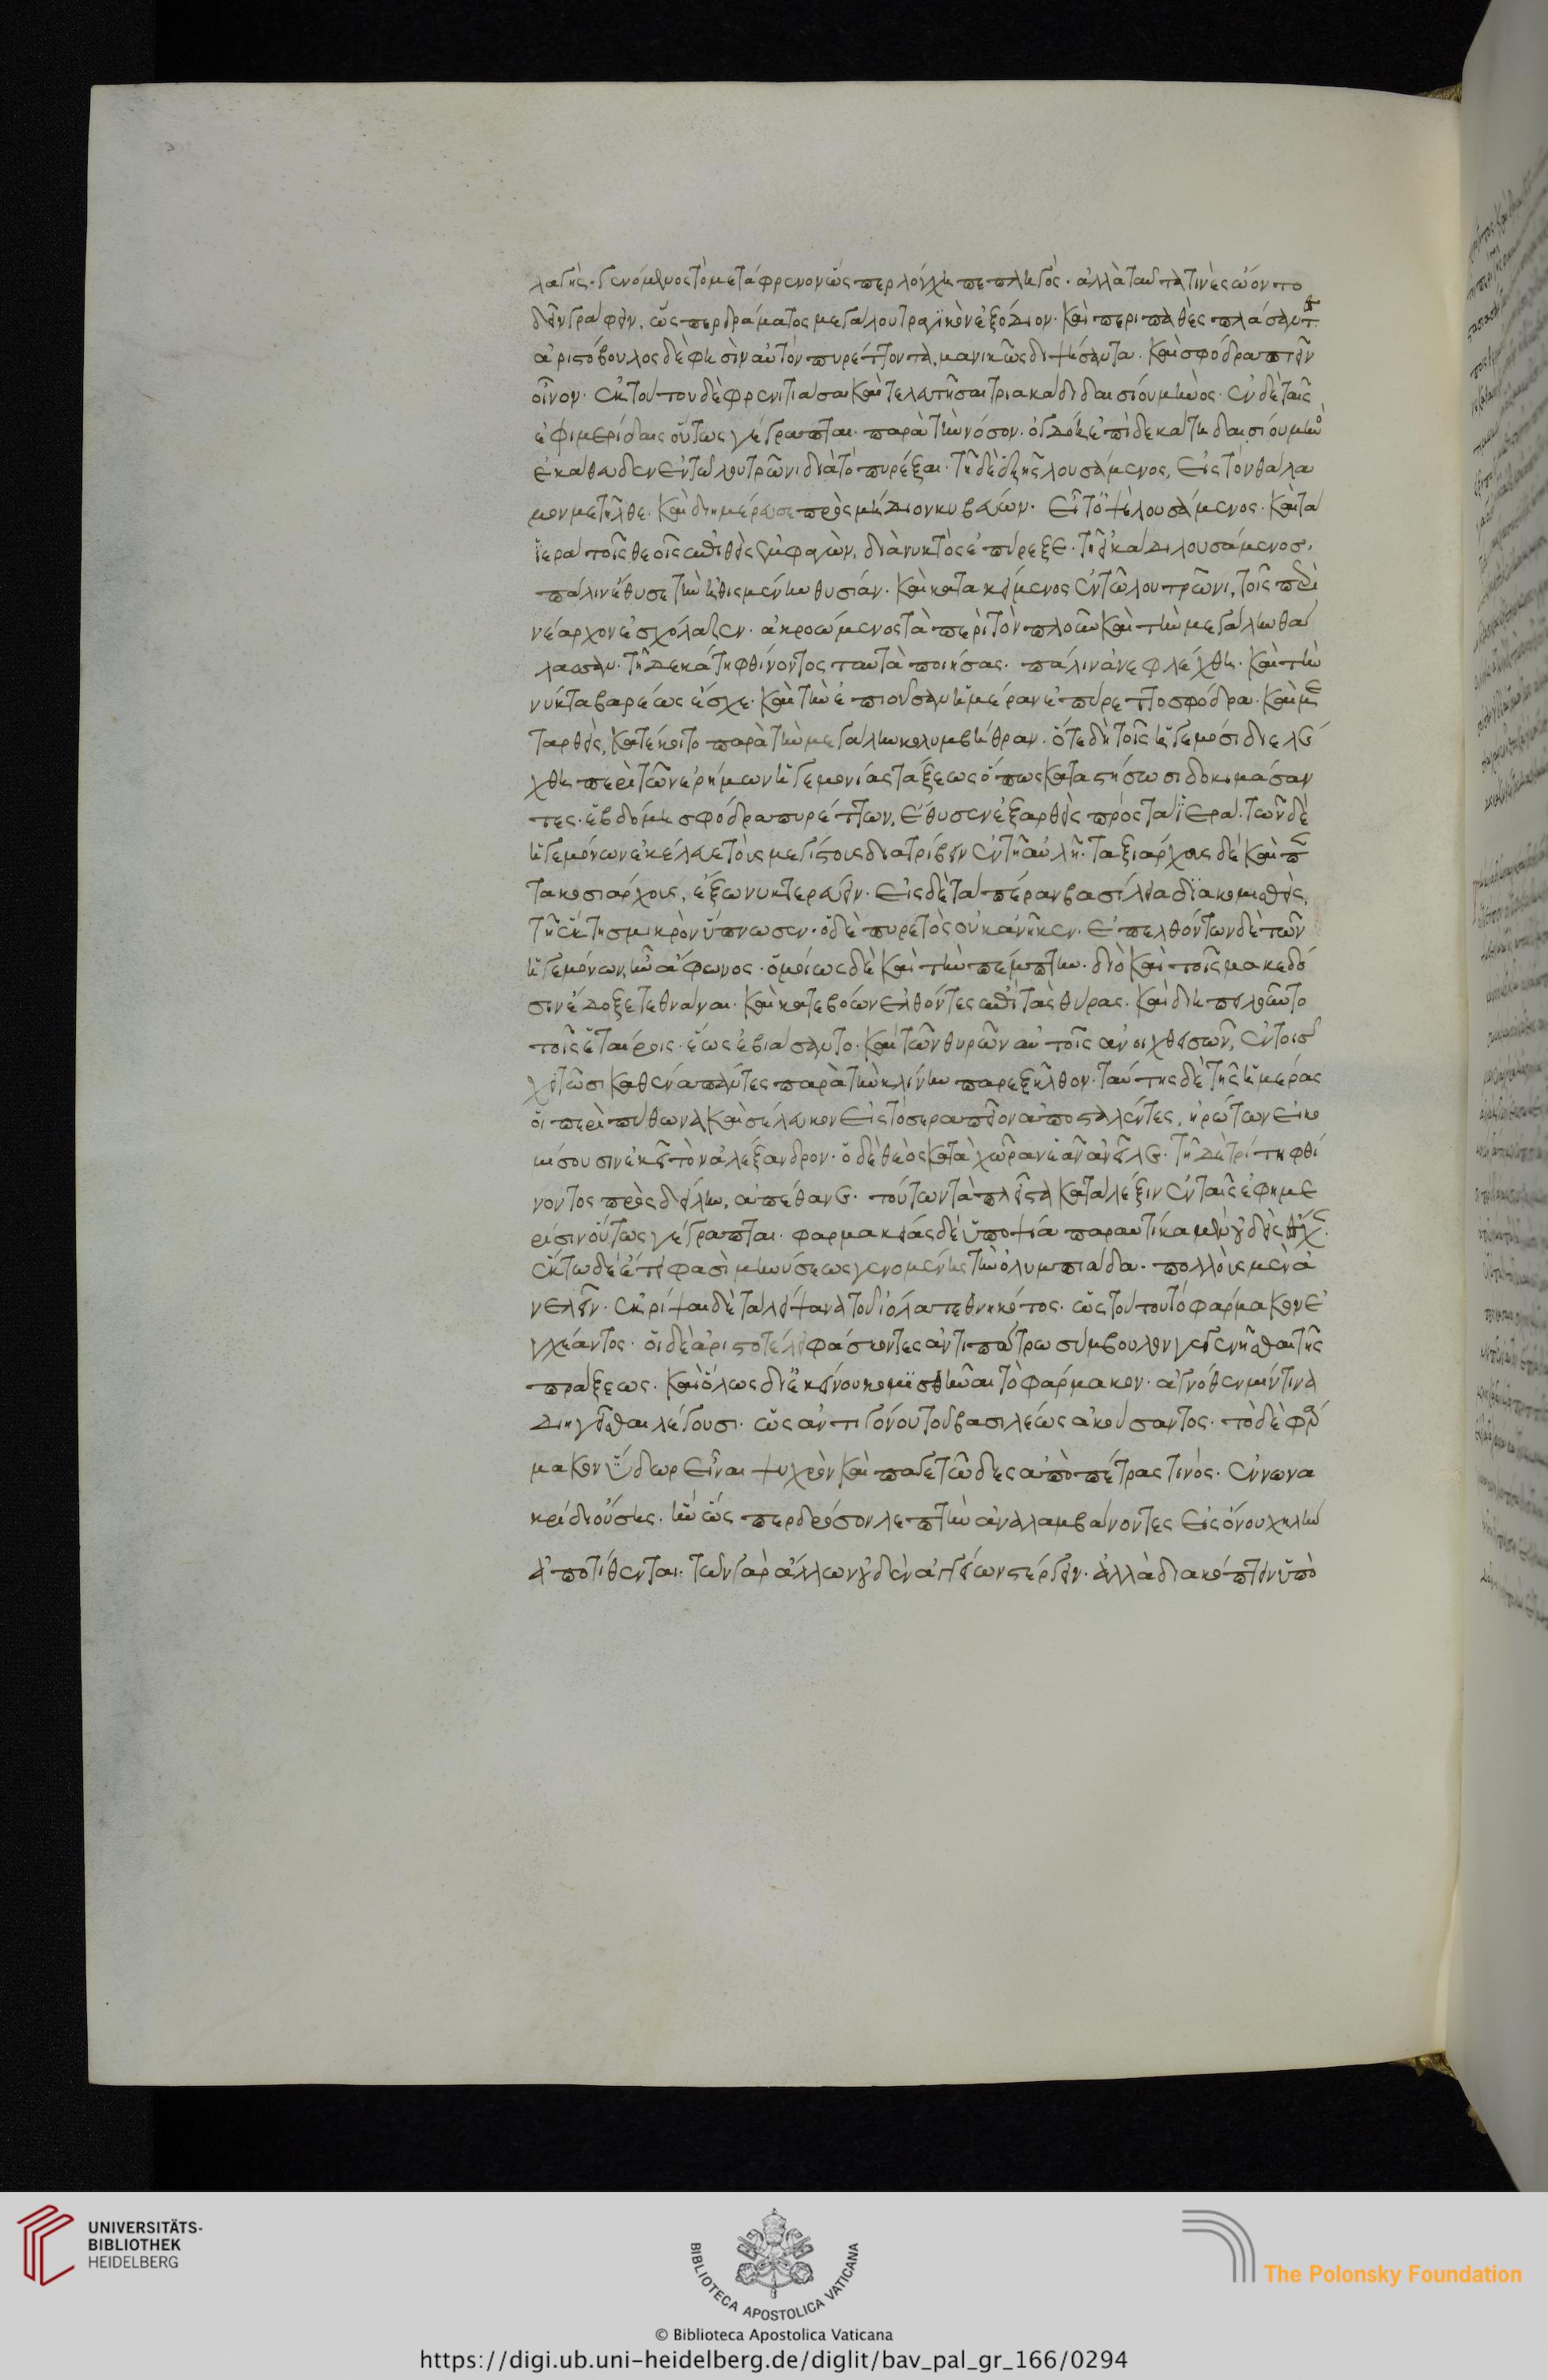 λαγὴς γενόμενος τὸ μετάφρενον ὥς περ λόγχη πεπληγὸς. ἀλλὰ ταῦτα τινὲς ὤοντο
δεῖν γράφειν, ὥς περ δράματος μεγάλου τραγϊκὸν ἐξόδιον. καὶ περιπαθὲς πλάσαντ
ἀριστόβουλος δὲ φησὶν αὐτὸν πυρέττοντα, μανικῶς διψήσαντα. καὶ σφόδρα πιεῖν
οἶνον. ἐκ τούτου δὲ φρενιτιάσαι καὶ τελευτῆσαι τριακάδι δαισίου μηνὸς. ἐν δὲ ταῖς
ἐφιμερίδαις οὕτως γέγραπται παρὰ τὴν νόσον. ὀγδόη ἐπὶ δεκάτη δαισίου μην
ἐκάθευδεν ἐν τῷ λουτρῶνι διὰ τὸ πυρέξαι. τῆ δὲ ἑξῆς λουσάμενος, εἰς τὸν θάλα
μον μετῆλθε. καὶ διημέρευσε πρὸς μήδιον κυβεύων. εἶτ᾽ ὀψὲ λουσάμενος. καὶ τὰ
ἱερὰ τοῖς θεοῖς ἐπιθεὶς ἐμφαγὼν, διὰ νυκτὸς ἐπύρεξε. τῆ εἰκάδι λουσάμενος,
πάλιν ἔθυσε τὴν εἰθισμένην θυσίαν. καὶ κατακείμενος ἐν τῷ λουτρῶνι, τοῖς περὶ
νέαρχον ἐσχόλαζεν. ἀκροώμενος τὰ περὶ τὸν πλοῦν καὶ τὴν μεγάλην θά
λασσαν. τῆ δεκάτη φθίνοντος ταυτὰ ποιήσας. πάλιν ἀνεφλέχθη. καὶ τὴν
νύκτα βαρέως ἔσχε. καὶ τὴν ἐπιοῦσαν ἡμέραν ἐπύρεττο σφόδρα. καὶ με
ταρθεὶς, κατέκειτο παρὰ τὴν μεγάλην κολυμβήθραν. ὅτε δὴ τοῖς ἡγεμόσι διελέ
χθη περὶ τῶν ἐρήμων ἡγεμονίας τάξεως ὅπως καταστήσωσι δοκιμάσαν
τες. ἑβδόμη σφόδρα πυρέττων, ἔθυσεν ἐξαρθεὶς πρὸς τὰ ἱερά. τῶν δὲ
ἡγεμόνων ἐκέλευε τοὺς μεγίστους διατρίβειν ἐν τῆ αὐλῆ. ταξιάρχους δὲ καὶ πεν
τακοσιάρχους, ἔξω νυκτερεύειν. εἰς δὲ τὰ πέραν βασίλεια διακομισθεὶς,
τῆ ἕκτη σμικρὸν ὕπνωσεν. ὁ δὲ πυρετὸς οὐκ ἀνῆκεν. ἐπελθόντων δὲ τῶν
ἡγεμόνων, ἦν ἄφωνος. ὁμοίως δὲ καὶ τὴν πέμπτην. διὸ καὶ τοῖς μακεδό
σιν ἔδοξε τεθνάναι. καὶ κατεβόων ἐλθόντες ἐπὶ τὰς θύρας. καὶ διηπειλοῦντο
τοῖς ἑταίροις. ἕως ἐβιάσαντο. καὶ τῶν θυρῶν αὐτοῖς ἀνοιχθεισῶν, ἐν τοῖς
χιτῶσι καθένα πάντες παρὰ τὴν κλίνην παρεξῆλθον. ταύτης δὲ τῆς ἡμέρας
οἱ περὶ πύθωνα καὶ σέλευκον εἰς τὸ σεραπεῖον ἀποσταλέντες, ἠρώτων εἰ κο
μίσουσιν ἐκεῖ τὸν ἀλέξανδρον. ὁ δὲ θεὸς κατὰ χώραν ἐᾶν ἀνεῖλε. τῆ δὲ τρίτη φθί
νοντος πρὸς δείλην, ἀπέθανε. τούτων τὰ πλεῖστα κατὰ λέξιν ἐν ταῖς ἐφημε
ρίσιν οὕτως γέγραπται. φαρμακείας δὲ ὑποψία παραυτίκα μὲν οὐδεὶς ἔσχ
ἕκτω δὲ ἔτει φασὶ μηνύσεως γενομένης τὴν ὀλυμπιάδα. πολλοὺς μὲν ἀ
νελεῖν. ἐκρίψαι δὲ τὰ λείψανα τοῦ ἰόλα τεθνηκότος. ὡς τούτου τὸ φάρμακον ἐ
γχέαντος. οἱ δὲ ἀριστοτέλει φάσκοντες ἀντιπάτρω σύμβουλον γεγενῆσθαι τῆς
πράξεως. καὶ ὅλως δι᾽ ἐκείνου κομϊσθῆναι τὸ φάρμακον. ἁγνόθεμίν τινα
διηγεῖσθαι λέγουσι. ὡς ἀντιγόνου τοῦ βασιλέως ἀκούσαντος. τὸ δὲ φάρ
μακον ὕδωρ εἶναι ψυχρὸν καὶ παγετῶδες ἀπὸ πέτρας τινὸς. ἐν νωνα
κρίδι οὔσης. ἣν ὥς περ δρόσον λεπτὴν ἀναλαμβάνοντες εἰς ὄνου χηλὴν
ἀποτίθενται. τῶν γὰρ ἄλλων οὐδὲν ἀγγείων στέργειν. ἀλλὰ διακόπτειν ὑπὸ
UNIVERSITÄTS-
BIBLIOTHEK
HEIDELBERG
BIBLIOTECA APOSTOLICA VATICANA
The Polonsky Foundation
© Biblioteca Apostolica Vaticana
https://digi.ub.uni-heidelberg.de/diglit/bav_pal_gr_166/0294